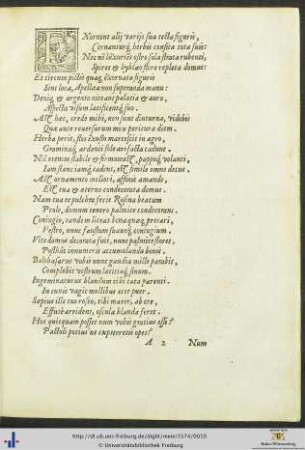 EXornent alij varijs sua tecta figuris,
Cernanturq́; herbis consita tota suis:
Nec nisi luxuries ostro sola strata rubenti,
Spiret & hyblæo flore replata domus:
Et circum pictis quaq́; exornata figuris
Sint loca, Apellæa non superanda manu:
Deniq; & argento niteant palatia & auro,
Aspectu visum lætificentq́; suo.
Ast hæc, crede mihi, non sunt diuturna, videbis
Quæ ante reuersuram mox peritura diem.
Herba perit, flos exustus marcescit in agro,
Graminaq́; ardenti sole arefacta cadunt.
Nil etenim stabile & firmum est,
Iam stant iamq́; cadent, est simile omne decus.
Ast ornamento meliori, affinis amande,
Est tua & æterno condecorata domus.
Nam tua te pulchra fecit Rosina beatum
Prole, domum tenero palmite condecorans.
Coniugio, tandem licuit bene quoq; precari,
Vestro, nunc faustum stauq́; coniugium.
Vite domus decorata fuit, nunc palmite floret,
Postibus innumeris accumulanda bonis.
Balthasarus vobis nunc gaudia mille parabit,
Complebit vestrum lætitiaq́; sinum.
Ingeminaturus blandum tibi tata parenti.
In cunis vagit mollibus ecce puer.
Sæpius ille tuo roseo, tibi mater, ab ore,
Effuse arridens, oscula blanda feret.
Hoc quicquam posset num vobis gratius esse?
Pactoli potius ne expeteretis opes?
A 2 Num
http://dl.ub.uni-freiburg.de/diglit/meie1574/0003
© Universitätsbibliothek Freiburg
Baden-Württemberg